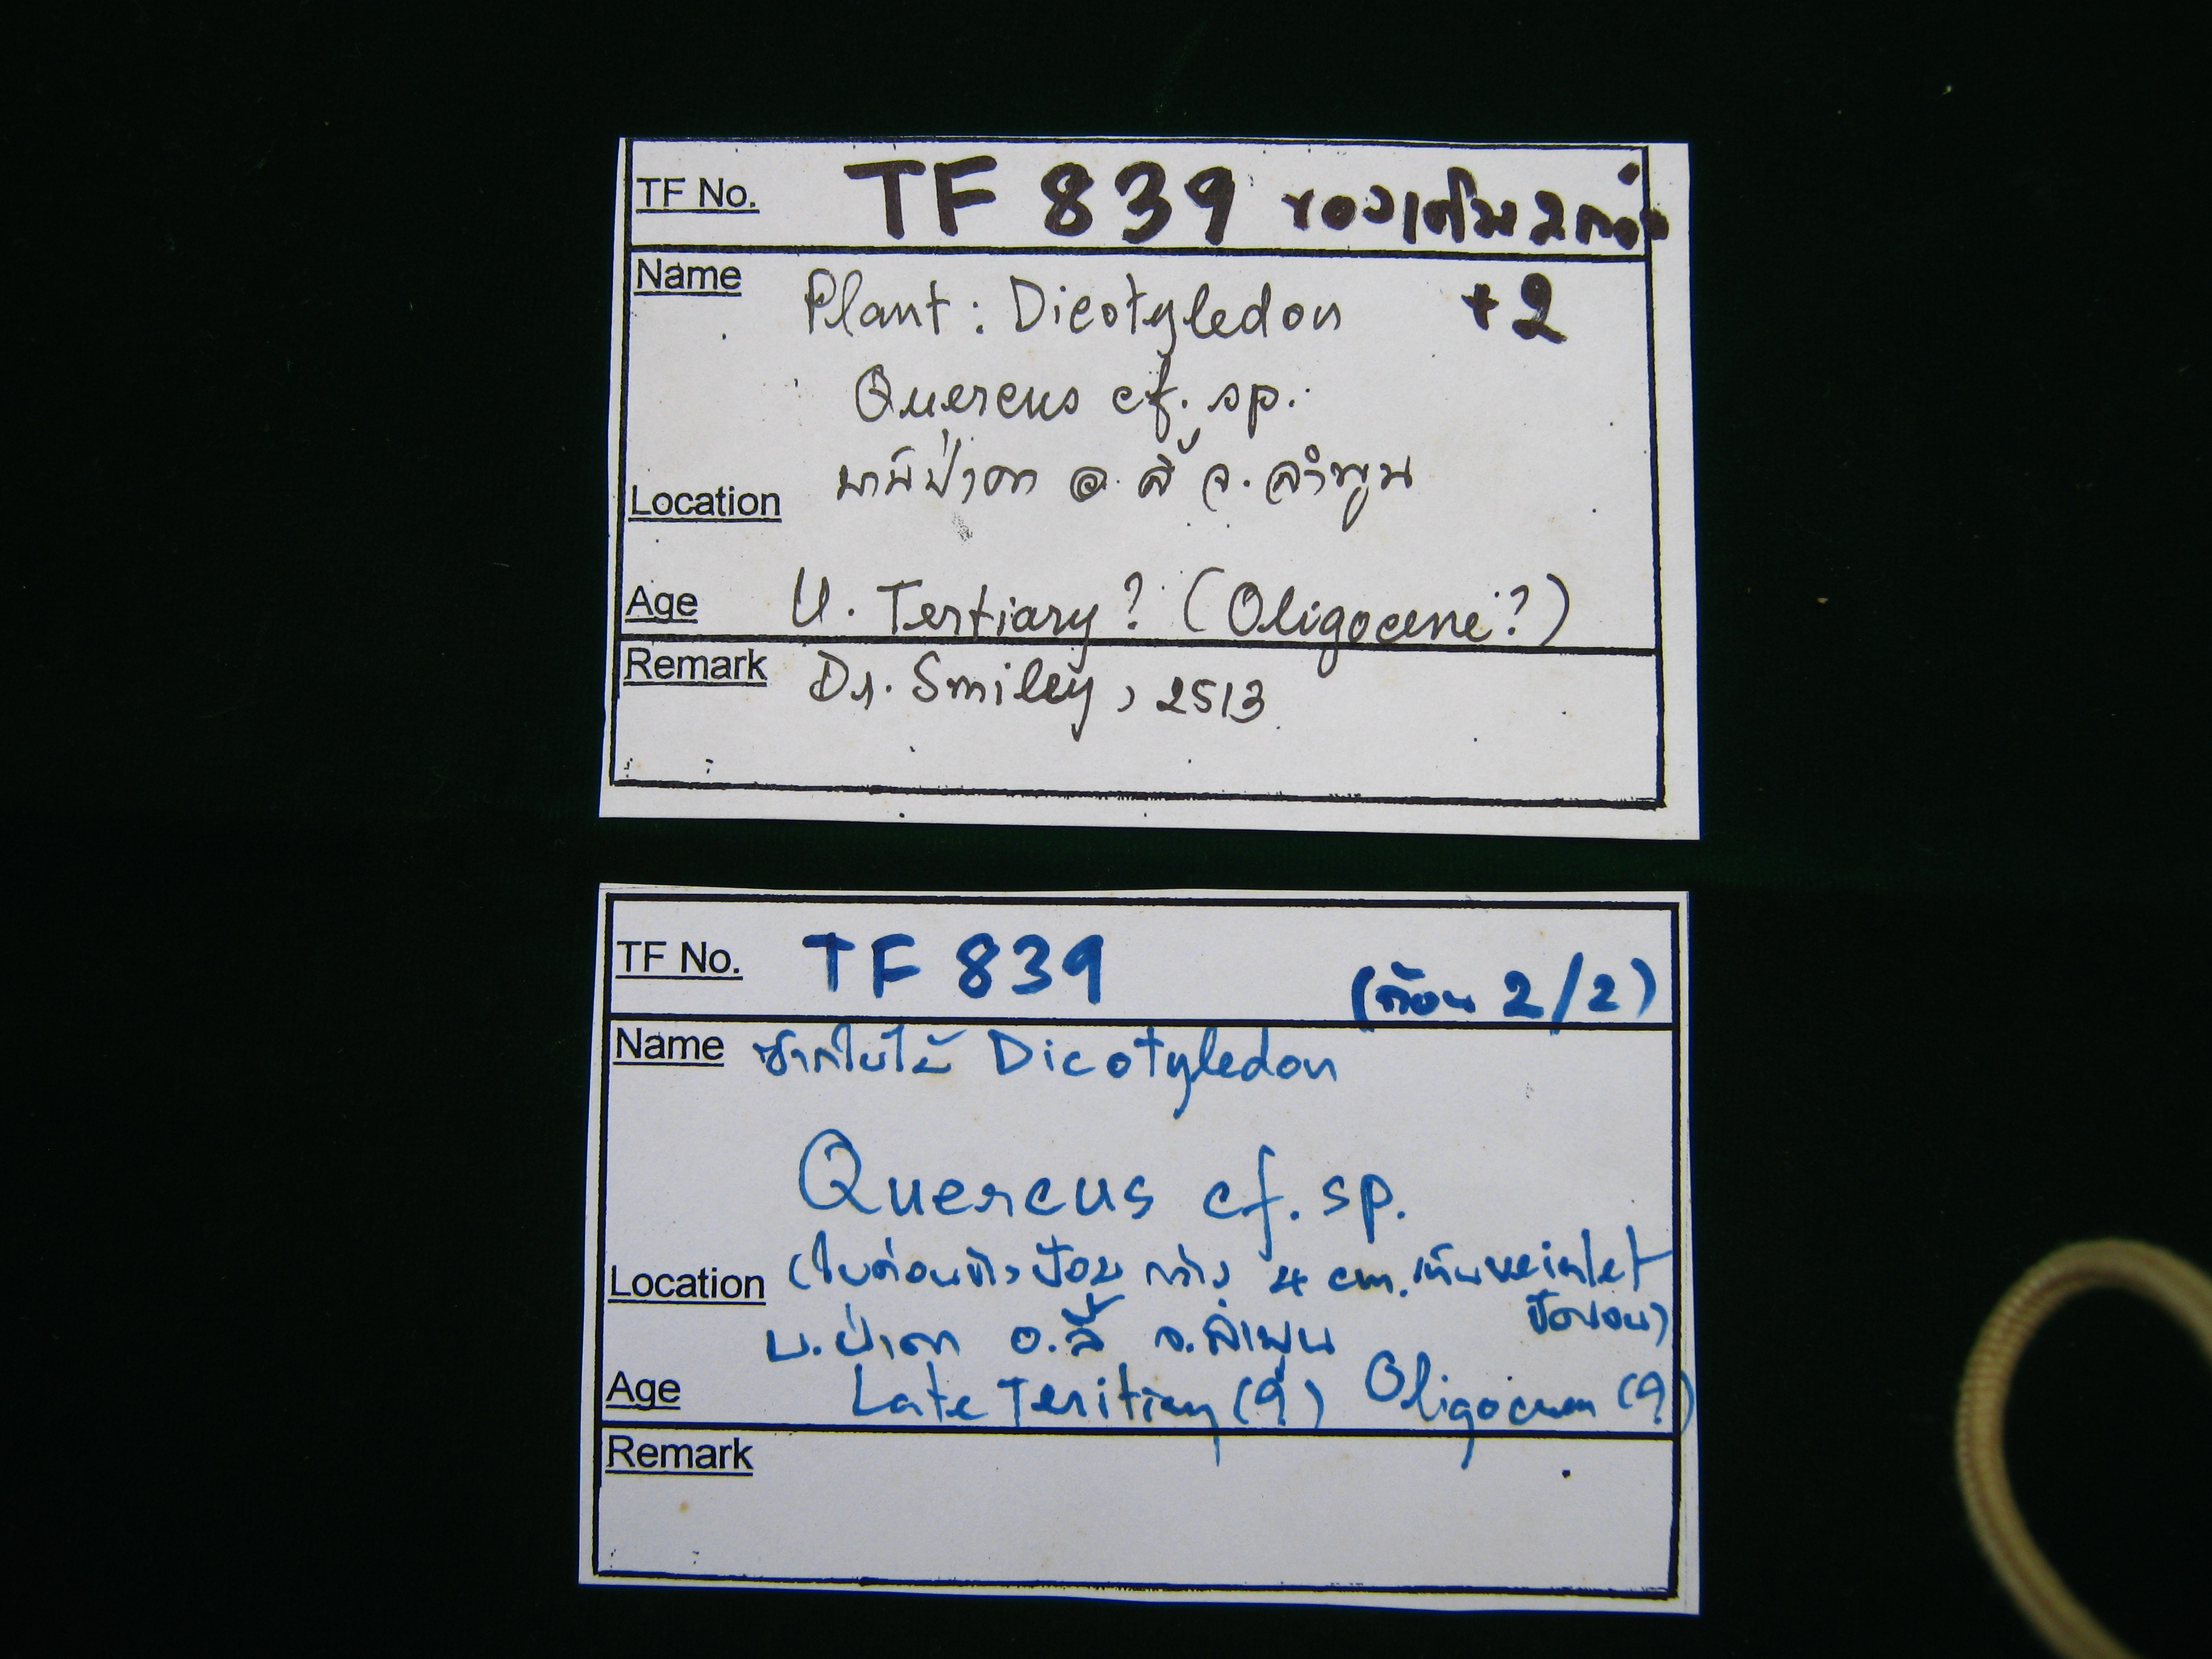 TF No. TF 839 ของเดิม 2 กล่อง
Name Plant : Dicotyledon +2
Quercus cf. sp.
Location บ้านป่าคา อ. ลี้ จ. ลำพูน
Age U. Tertiary? (Oligocene?)
Remark Dr. Smiley, 2513
TF No. TF 839 (ก้อน 2/2)
Name ซากใบไม้ Dicotyledon
Quercus cf. sp.
Location (ใบค่อนข้างป้อม กว้าง 4 cm. เห็น veinlet
บ.ป่าคา อ.ลี้ จ.ลำพูน
Age Late Teritiary (?) Oligocene (?)
Remark